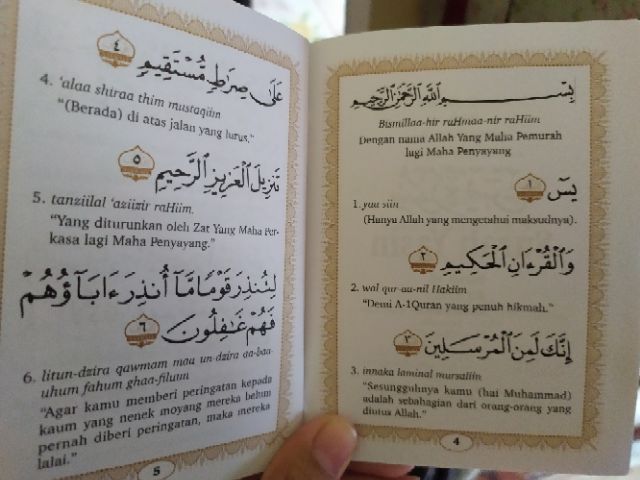 بِسْمِ اللهِ الرَّحْمٰنِ الرَّحِيْمِ
Bismillaa-hir raHmaa-nir raHiim
Dengan nama Allah Yang Maha Pemurah
lagi Maha Penyayang
يسٓ ۝١
1. yaa siin
(Hanya Allah yang mengetahui maksudnya).
وَالْقُرْءَانِ الْحَكِيمِ ۝٢
2. wal qur-au-nil Hakiim
"Demi A-1Quran yang penuh hikmah."
إِنَّكَ لَمِنَ الْمُرْسَلِينَ ۝٣
3. innaka laminal mursaliin
"Sesungguhnya kamu (hai Muhammad)
adalah sebahagian dari orang-orang yang
diutus Allah."
4
عَلَىٰ صِرَاطٍ مُّسْتَقِيمٍ ۝٤
4. 'alaa shiraa thim mustaqiin
"(Berada) di atas jalan yang lurus."
تَنزِيلَ الْعَزِيزِ الرَّحِيمِ ۝٥
5. tanziilal 'aziizir raHiim.
"Yang diturunkan oleh Zat Yang Maha Per-
kasa lagi Maha Penyayang."
لِتُنذِرَ قَوْمًا مَّآ أُنذِرَ ءَابَآؤُهُمْ
فَهُمْ غَٰفِلُونَ ۝٦
6. litun-dzira qawmam maa un-dzira aa-baa-
uhum fahum ghaa-filuun
"Agar kamu memberi peringatan kepada
kaum yang nenek moyang mereka belum
pernah diberi peringatan, maka mereka
lalai."
5